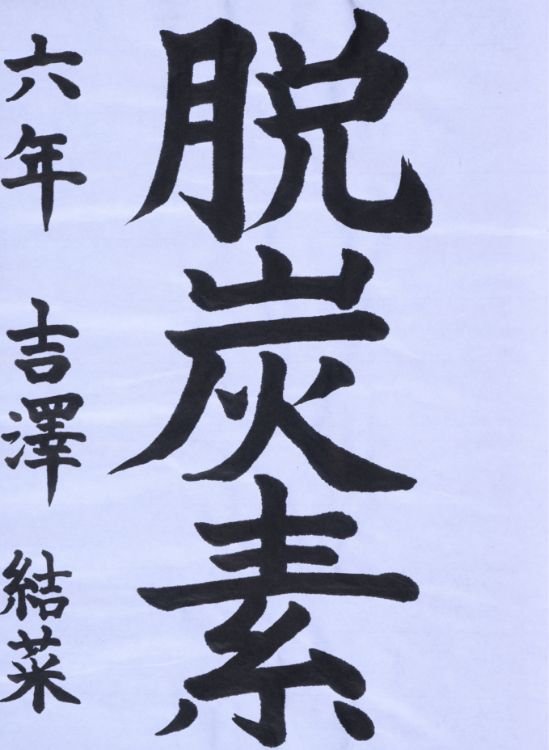 脱炭素
六年 吉澤 結菜